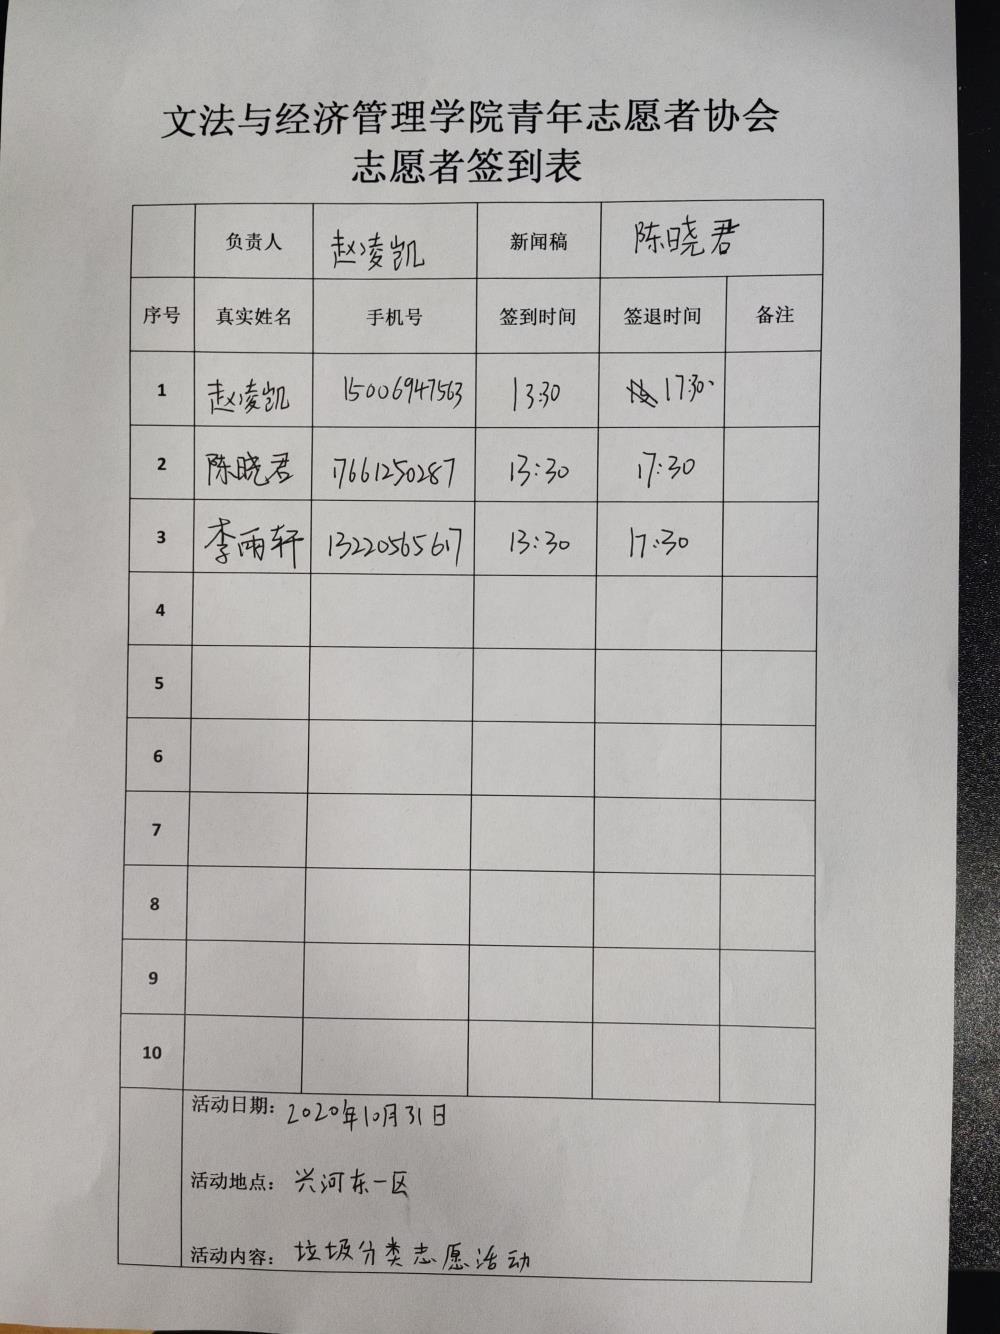 文法与经济管理学院青年志愿者协会
志愿者签到表
负责人 赵凌凯 新闻稿 陈晓君
序号 真实姓名 手机号 签到时间 签退时间 备注
1 赵凌凯 15006947563 13:30 17:30
2 陈晓君 17661250287 13:30 17:30
3 李雨轩 13220565617 13:30 17:30
4
5
6
7
8
9
10
活动日期：2020年10月31日
活动地点：兴河东一区
活动内容：垃圾分类志愿活动